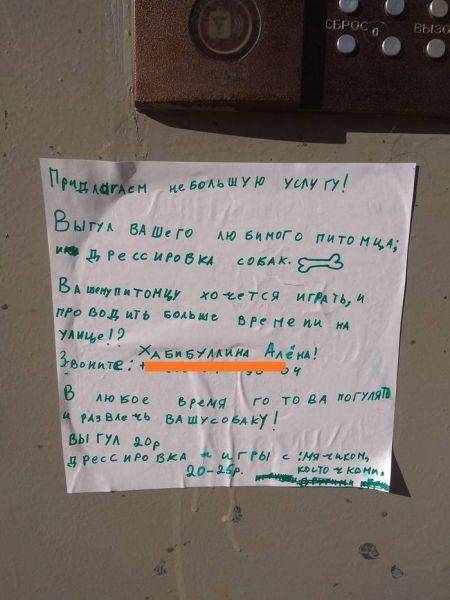 СБРОС
ВЫЗО
Придлагаем небольшую услугу!
Выгул вашего любимого питомца;
дрессировка собак.
Вашему питомцу хочется играть, и
проводить больше времени на
улице!?
Хабибуллина Алёна!
Звоните: +
В любое время готова погулять
и развлечь вашу собаку!
Выгул 20р
дрессировка и игры с: мячиком,
косточками,
20-25р.